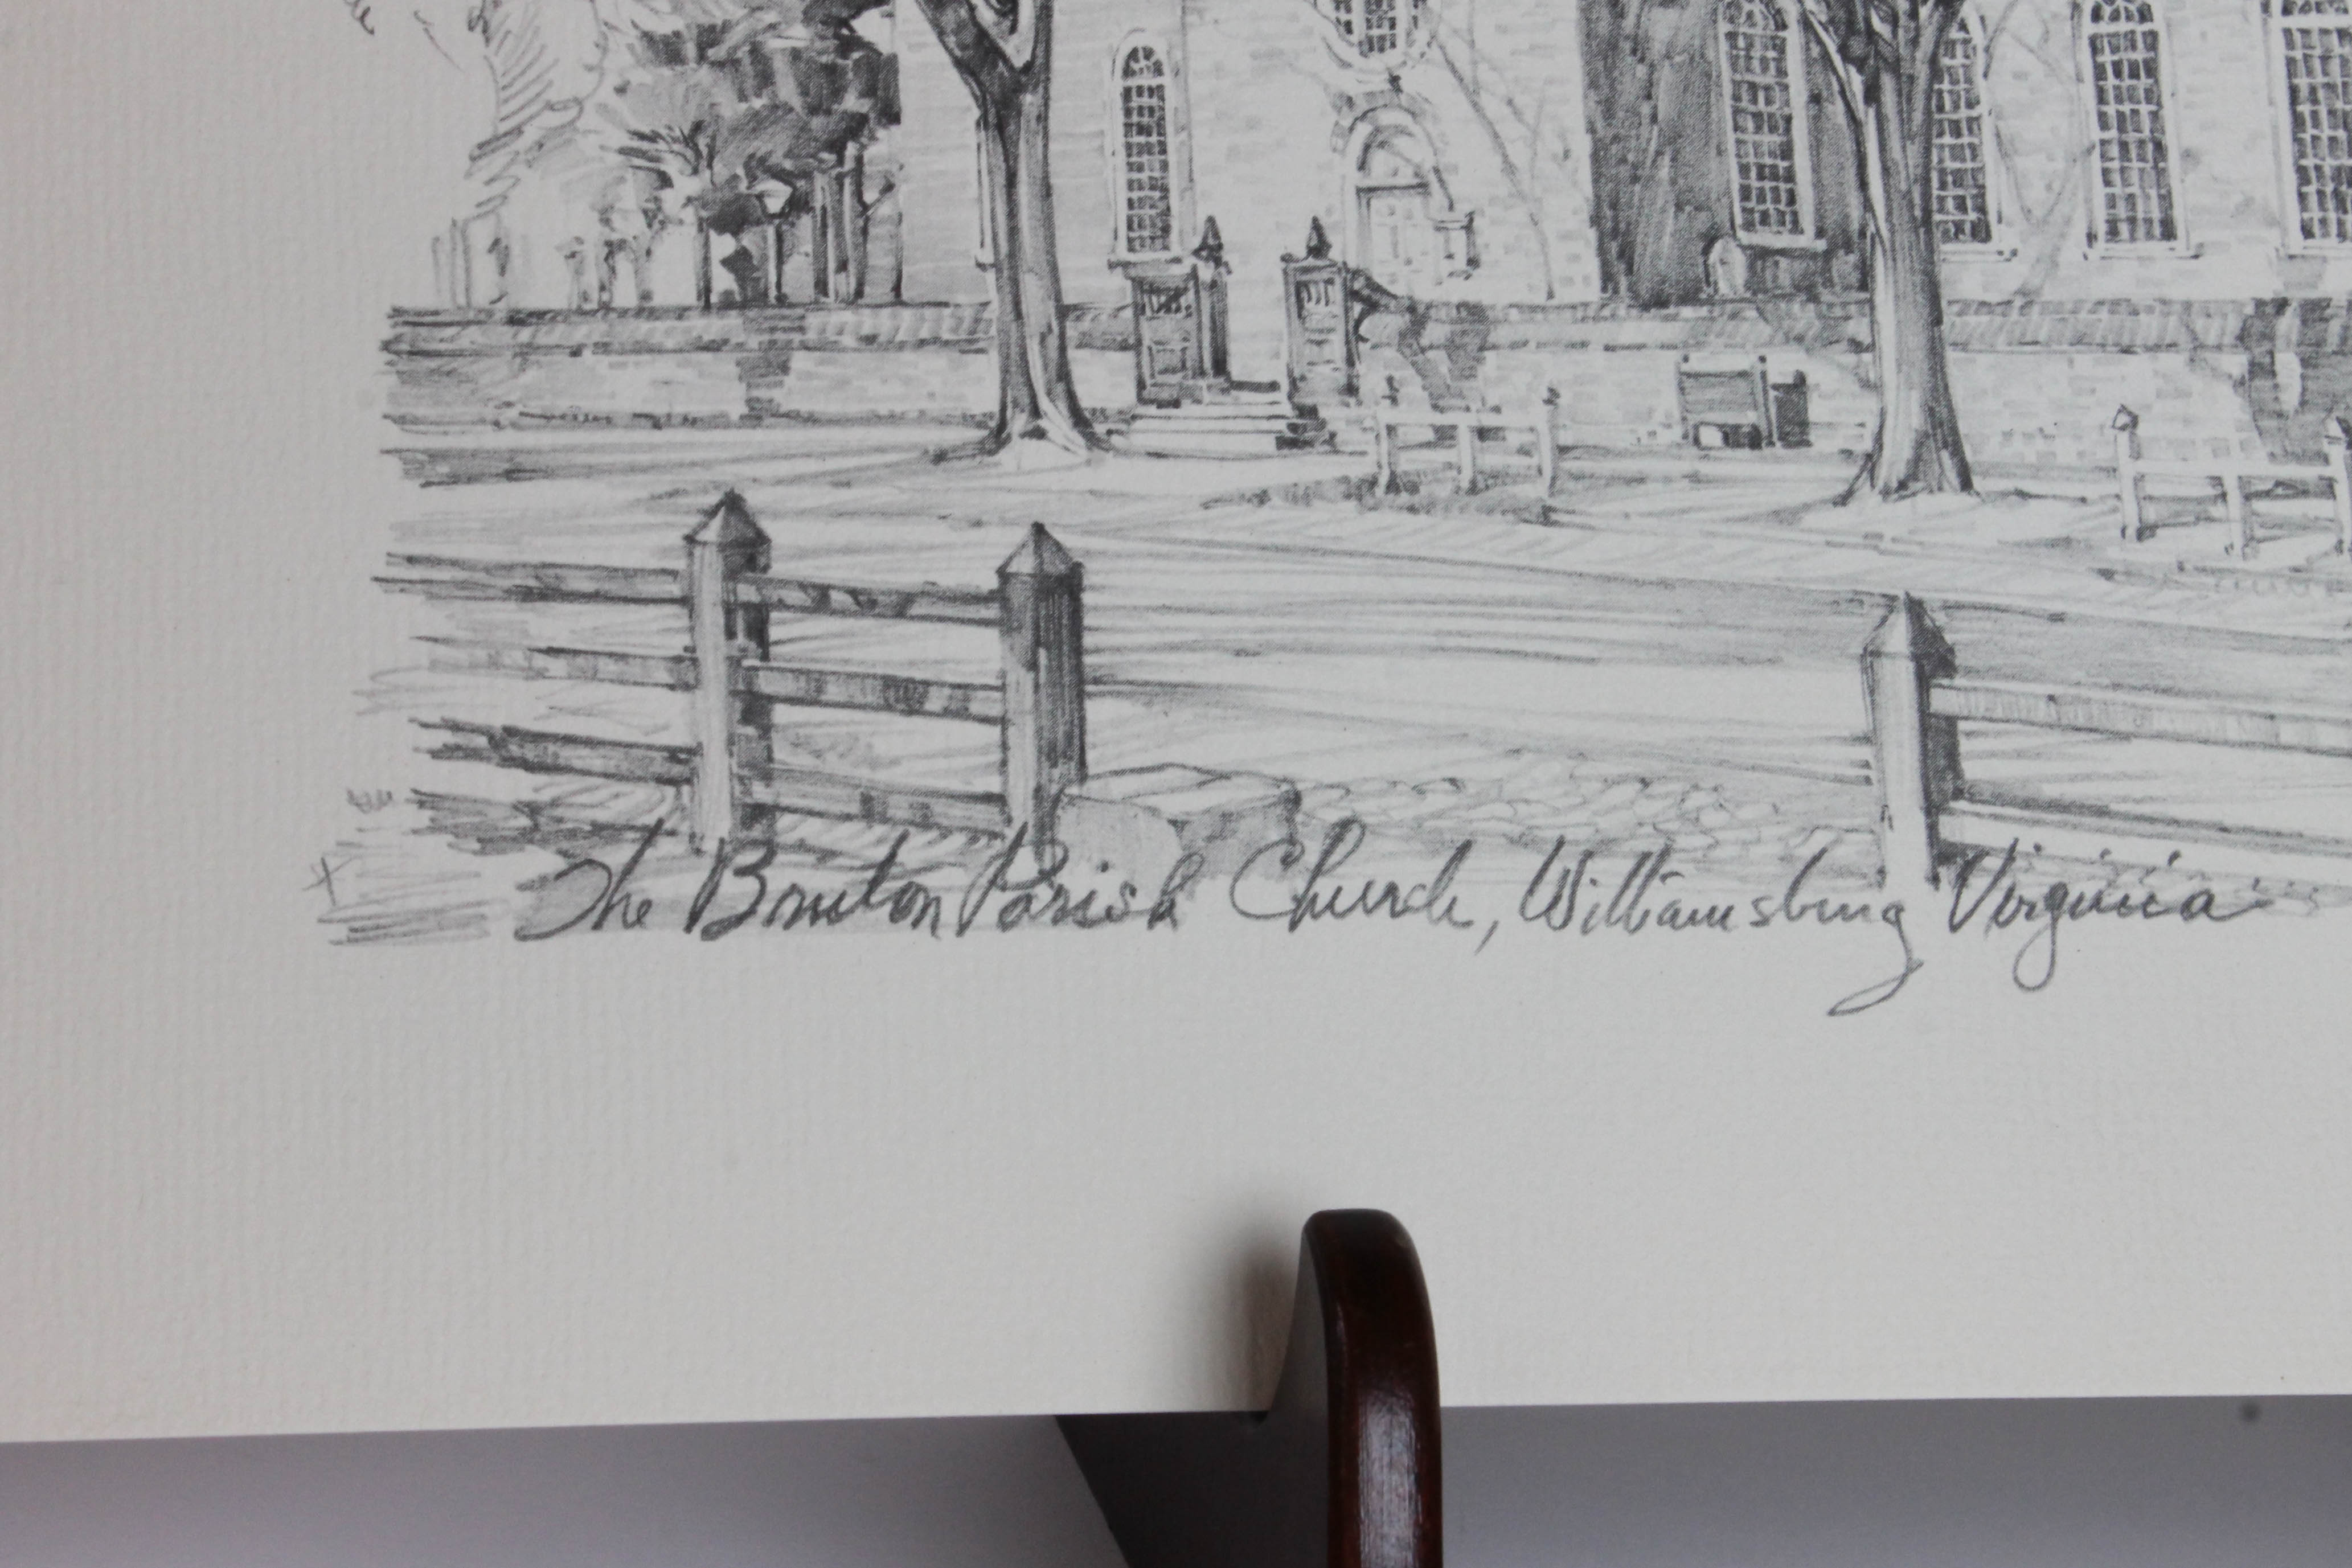 The Bruton Parish Church, Williamsburg Virginia